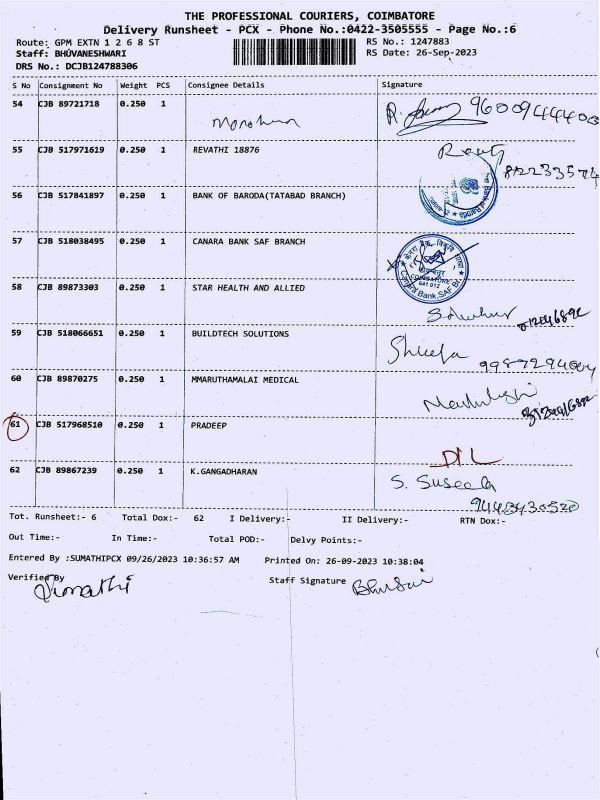 THE PROFESSIONAL COURIERS, COIMBATORE
Delivery Runsheet - PCX - Phone No.:0422-3505555 - Page No.:6
Route: GPM EXTN 1 2 6 8 ST RS No.: 1247883
Staff: BHUVANESHWARI RS Date: 26-Sep-2023
DRS No.: DCJB124788306
S No Consignment No Weight PCS Consignee Details Signature
54 CJB 89721718 0.250 1 9600944400
55 CJB 517971619 0.250 1 REVATHI 18876
56 CJB 517841897 0.250 1 BANK OF BARODA(TATABAD BRANCH)
57 CJB 518038495 0.250 1 CANARA BANK SAF BRANCH
COIMBATORE
641 012
Canara Bank, SAF Br
58 CJB 89873303 0.250 1 STAR HEALTH AND ALLIED
59 CJB 518066651 0.250 1 BUILDTECH SOLUTIONS
60 CJB 89870275 0.250 1 MMARUTHAMALAI MEDICAL
61 CJB 517968510 0.250 1 PRADEEP
D/L
62 CJB 89867239 0.250 1 K.GANGADHARAN S. Suseela
9443430520
Tot. Runsheet:- 6 Total Dox:- 62 I Delivery:- II Delivery:- RTN Dox:-
Out Time:- In Time:- Total POD:- Delvy Points:-
Entered By :SUMATHIPCX 09/26/2023 10:36:57 AM Printed On: 26-09-2023 10:38:04
Verified By Staff Signature